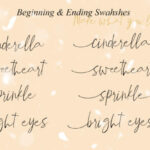 Beginning & Ending Swahshes
cinderella
cinderella
sweetheart
sweetheart
sprinkle
sprinkle
bright eyes
bright eyes